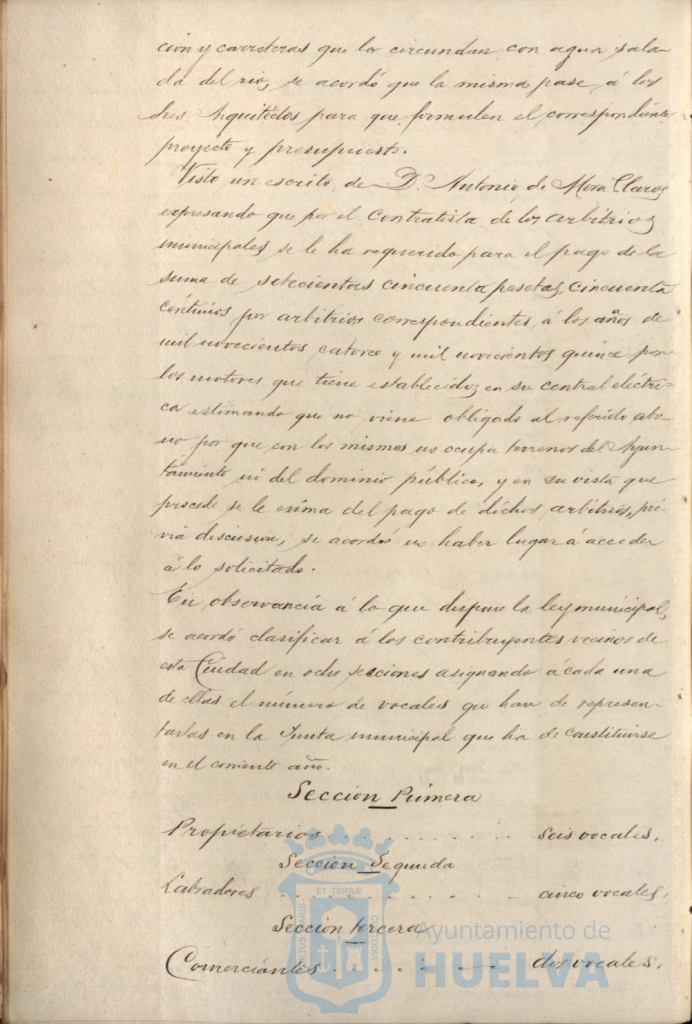 ción y carreteras que la circundan con agua sala-
da del rio, se acordó que la misma pase á los
Sres. Arquitectos para que formulen el correspondiente
proyecto y presupuesto.
Visto un escrito de D. Antonio de Mora Claros
expresando que por el contratista de los arbitrios
municipales se le ha requerido para el pago de la
suma de setecientas cincuenta pesetas, cincuenta
céntimos por arbitrios correspondientes, á los años de
mil novecientos catorce y mil novecientos quince por
los motores que tiene establecidos en su central eléctri-
ca estimando que no viene obligado al referido abo-
no por que con los mismos no ocupa terrenos del Ayun-
tamiento ni del dominio público, y en su vista que
procede se le exima del pago de dichos arbitrios, pré-
via discusion, se acordó no haber lugar á acceder
á lo solicitado.
En observancia á lo que dispone la ley municipal,
se acordó clasificar á los contribuyentes vecinos de
esta Ciudad en ocho secciones asignando á cada una
de ellas el número de vocales que han de represen-
tarlas en la Junta municipal que ha de constituirse
en el corriente año.
Seccion Primera
Propietarios . . . . . . . . . . seis vocales.
Seccion Segunda
Labradores . . . . . . . . . . cinco vocales,
Seccion tercera
Comerciantes . . . . . . dos vocales.
ET TERRÆ
PORTUS MARIS
CUSTODIA
Ayuntamiento de
HUELVA